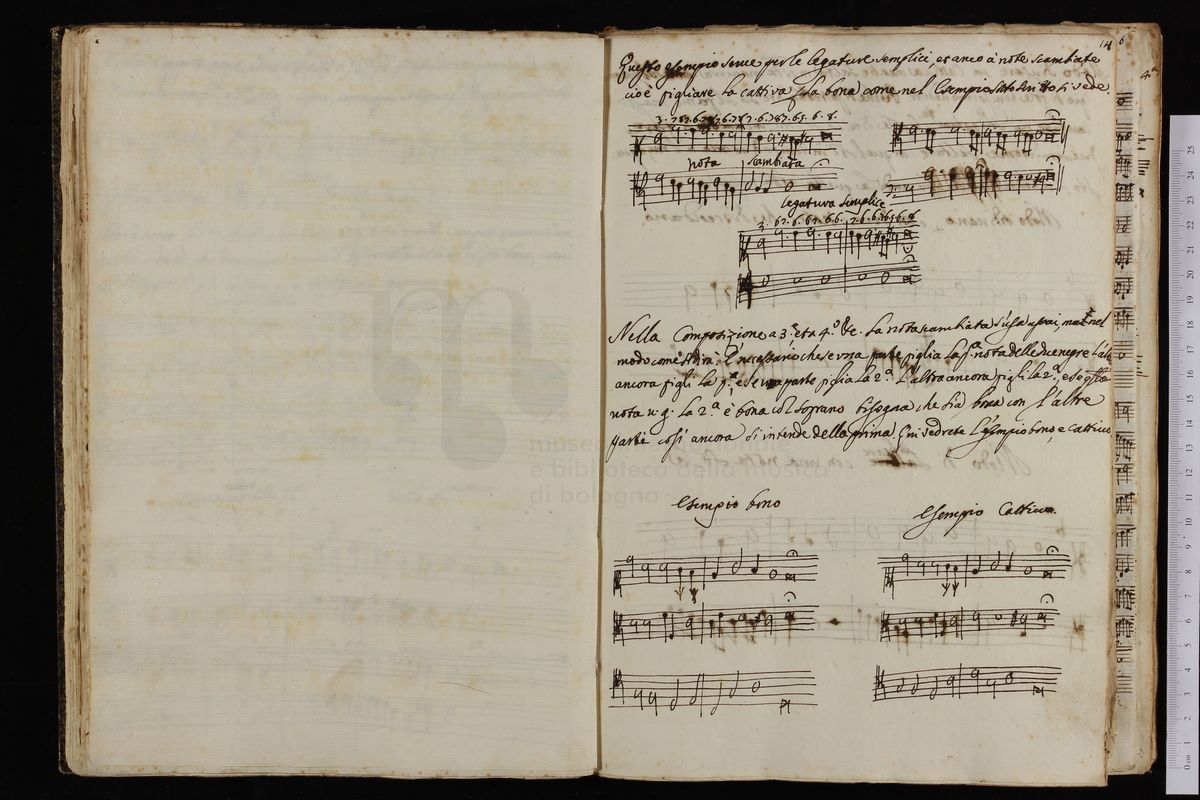 14
6
Questo esempio serue per le legature semplici, et anco à note scambiate
cioè pigliare la cattiva p la bona come nel Esempio sotto scritto si vede
3. 7 8 7. 6. 7 6. 7 8 7. 6. 7 8 7. 6 5. 6. 8.
nota scambiata
legatura semplice
3. 6 7. 6. 6. 6. 7. 6. 8
Nella Composizione a 3. et a 4.º &c. la nota scambiata si usa assai, ma nel
modo come si dirà. È necessario che se una parte piglia la p.ª nota delle due negre l'altra
ancora pigli la p.ª e se una parte piglia la 2.ª l'altra ancora pigli la 2.ª, e se
nota u. g. la 2.ª è bona col soprano bisogna che sia bona con l'altre
parte così ancora si intende della prima. Qui vedrete l'esempio bono, e cattiuo
museo
e biblioteca della musica
di bologna
Esempio bono
Esempio Cattiuo.
0 cm 1 2 3 4 5 6 7 8 9 10 11 12 13 14 15 16 17 18 19 20 21 22 23 24 25